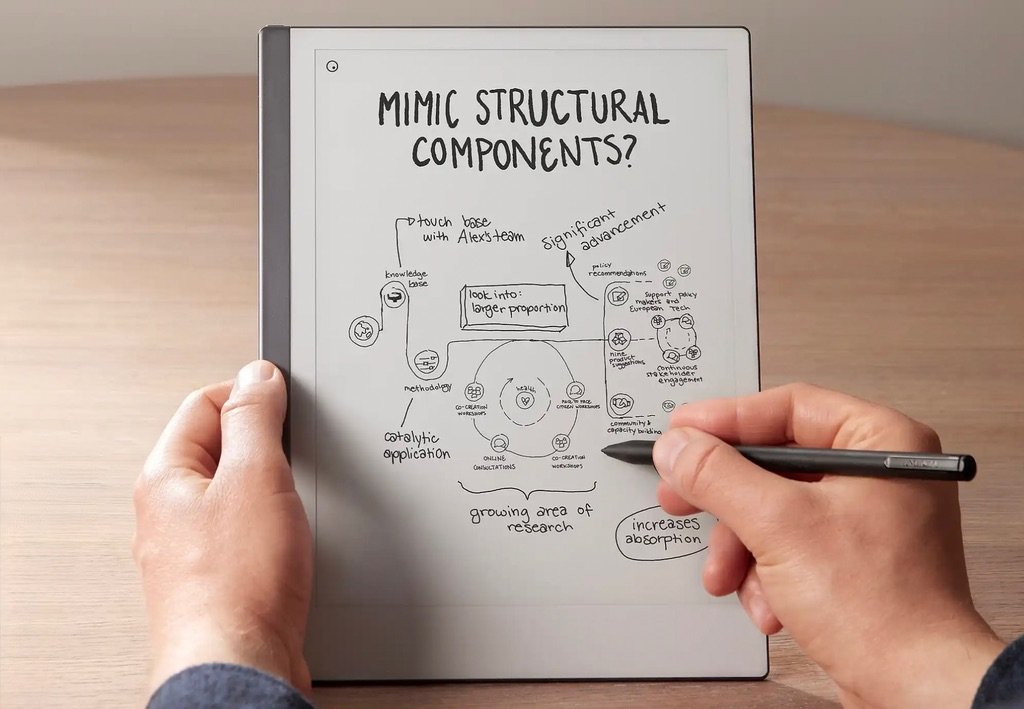 MIMIC STRUCTURAL
COMPONENTS?
touch base
with Alex's team
significant
advancement
knowledge
base
look into:
larger proportion
policy
recommendations
support policy
makers and
European Tech
nine
product
suggestions
continuous
stakeholder
engagement
methodology
health
CO-CREATION
WORKSHOPS
FACE TO FACE
CITIZEN WORKSHOPS
community &
capacity building
catalytic
application
ONLINE
CONSULTATIONS
CO-CREATION
WORKSHOPS
growing area of
research
increases
absorption